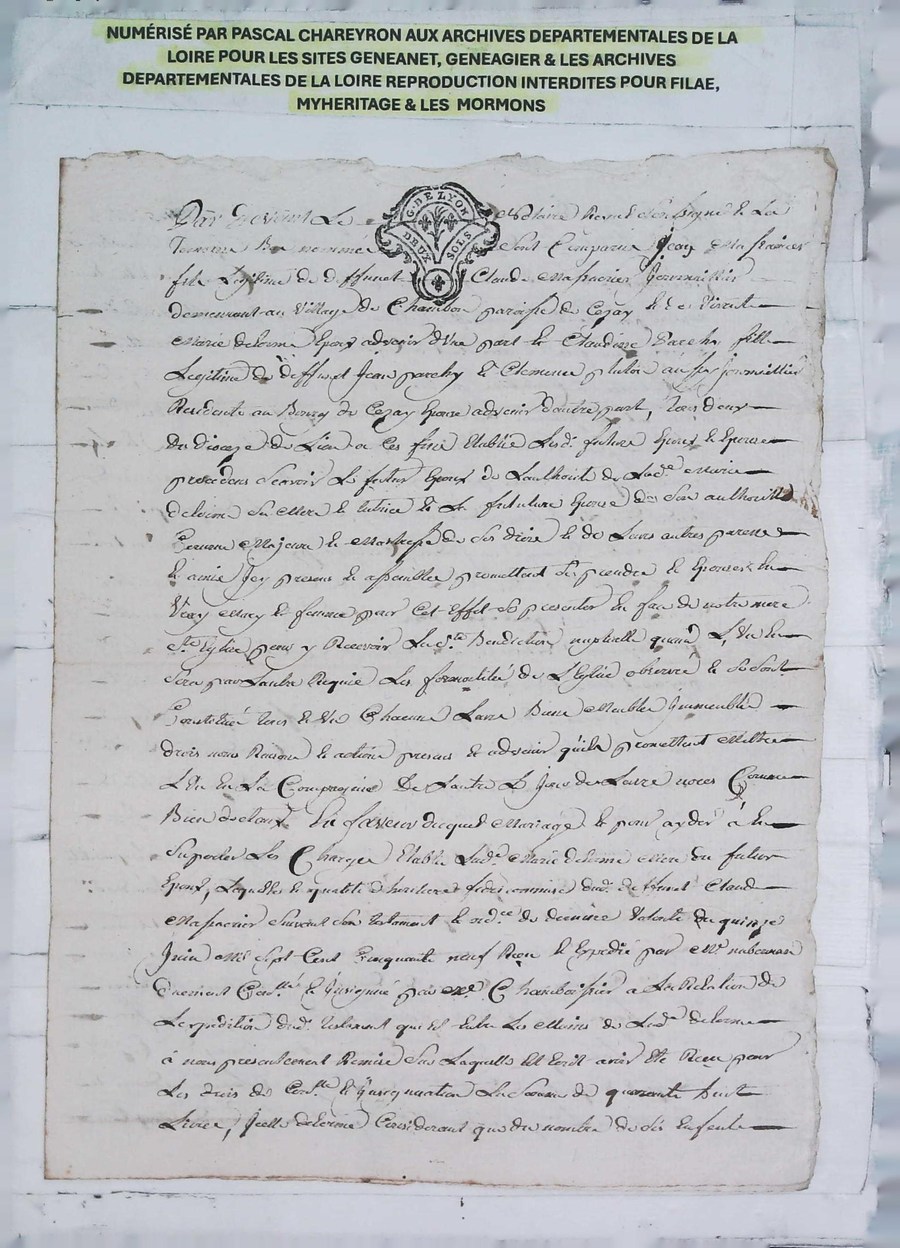 NUMÉRISÉ PAR PASCAL CHAREYRON AUX ARCHIVES DEPARTEMENTALES DE LA
LOIRE POUR LES SITES GENEANET, GENEAGIER & LES ARCHIVES
DEPARTEMENTALES DE LA LOIRE REPRODUCTION INTERDITES POUR FILAE,
MYHERITAGE & LES MORMONS
G. DE LYON
DEUX SOLS
Par devant Le Notaire Royal soussigné et Les
Temoins Bas nommés sont Comparus Jean Massacrier
fils Legitime de deffunct Claude Massacrier Journaillier
demeurant au Village de Chambon paroisse de Cezay et de Vivante
Marie delorme Epoux advenir d'Une part et Claudine Parchy fille
Legitime de deffunct Jean parchy et Clemence journaillier
Residente au Bourg de Cezay Epouse advenir d'autre part, tous deux
du dioceze de Lion a ces fins Etablis Lesd. futurs Epoux et Epouse
procedans sçavoir Le futur Epoux de L'authorité de Lade. Marie
delorme sa Mere et tutrice et La future Epouse de son authorité
Comme Majeure et Maistresse de ses droits et de Leurs autres parens
et amis Icy presens et assemblés promettent se prendre et Epouser En
Vray Mary et femme pour Cet Effet se presenter En face de notre mere
Ste Eglise pour y Recevoir La de. Benediction nuptialle quand L'Un En
sera par L'autre Requis Les formalités de L'Eglise observé et se sont
Constitué tous et Un Chacuns Leurs Biens Meubles Immeubles
droits noms Raisons et actions presens et advenir qu'ils promettent Mettre
L'Un En La Compagnie De L'autre Le Jour de Leurs noces Comme
Biens dotaux En faveur duquel Mariage et pour ayder à En
suporter Les Charges Etablie Lade. Marie delorme Mere du futur
Epoux, Laquelle En qualité d'heritiere fideicommise dud. deffunct Claude
Massacrier suivant son testament et ordce. de derniere Volonté du quinze
Juin Mil Sept Cent Cinquante neuf Reçu et Expedié par Me
Duement Conllé et Insinué par Me Chamboissier a La Relation de
L'expedition dud. testament qui est Entre Les Mains de Lade. delorme
à nous presentement Remise sur Laquelle Est Ecrit avoir Eté Reçu pour
Les droits de Conlle et Insinuation La somme de quarante huit
Livres, Icelle delorme Considerant que du nombre de six Enfants